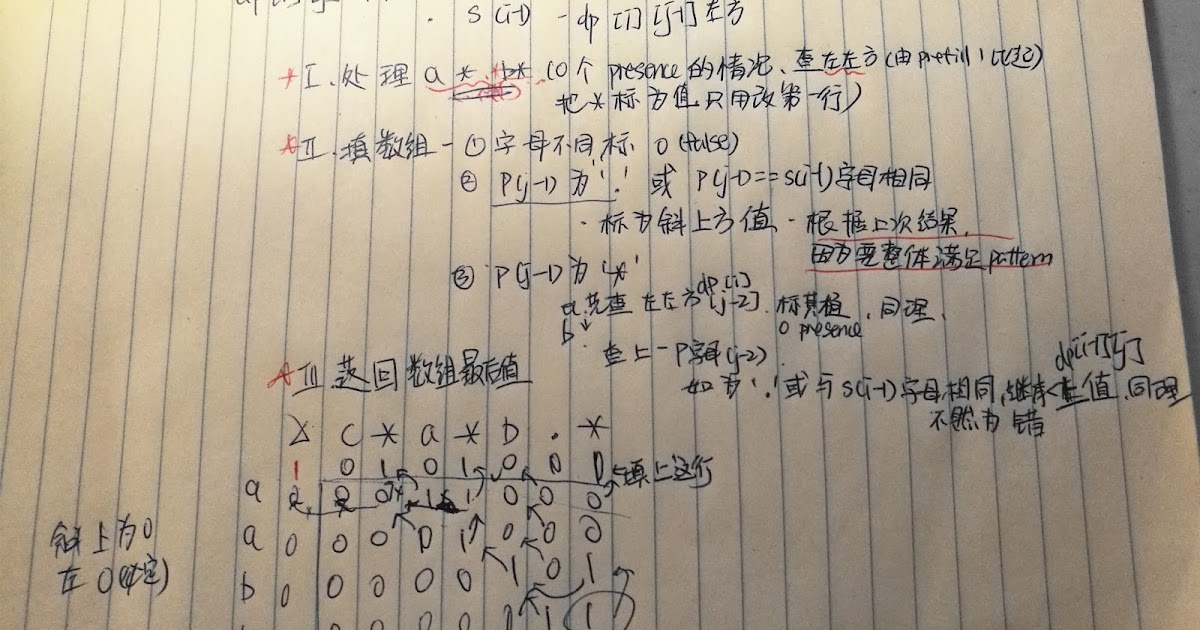 s(i-1) - dp [i] [j-1] 左方
* I. 处理 a * b* (0个 presence 的情况、查左左方(由prefill
把*标为值只用改第一行)
* II. 填数组 - ① 字母不同标 0 (false)
② P(j-1) 为 '.' 或 P(j-1) == s(i-1) 字母相同
· 标为斜上方值 - 根据上次结果,
因为要整体满足 pattern
③ P(j-1) 为 '*'
a. 先查左左方 dp[i][j-2]. 标其值, 同理,
0 presence
b. 查上一P字母(j-2)
如为 '.' 或与 s(i-1) 字母相同, 继承 dp[i-1][j] 值, 同理
不然为错
* III 返回数组最后值
c * a * b . *
1 0 1 0 1 0 0 0 填上这行
a 0 0 1 1 0 0 0
a 0 0 0 0 1 0 0 0
斜上为0
左 0
b 0 0 0 0 0 1 0 1
0 0 0 0 0 1 1